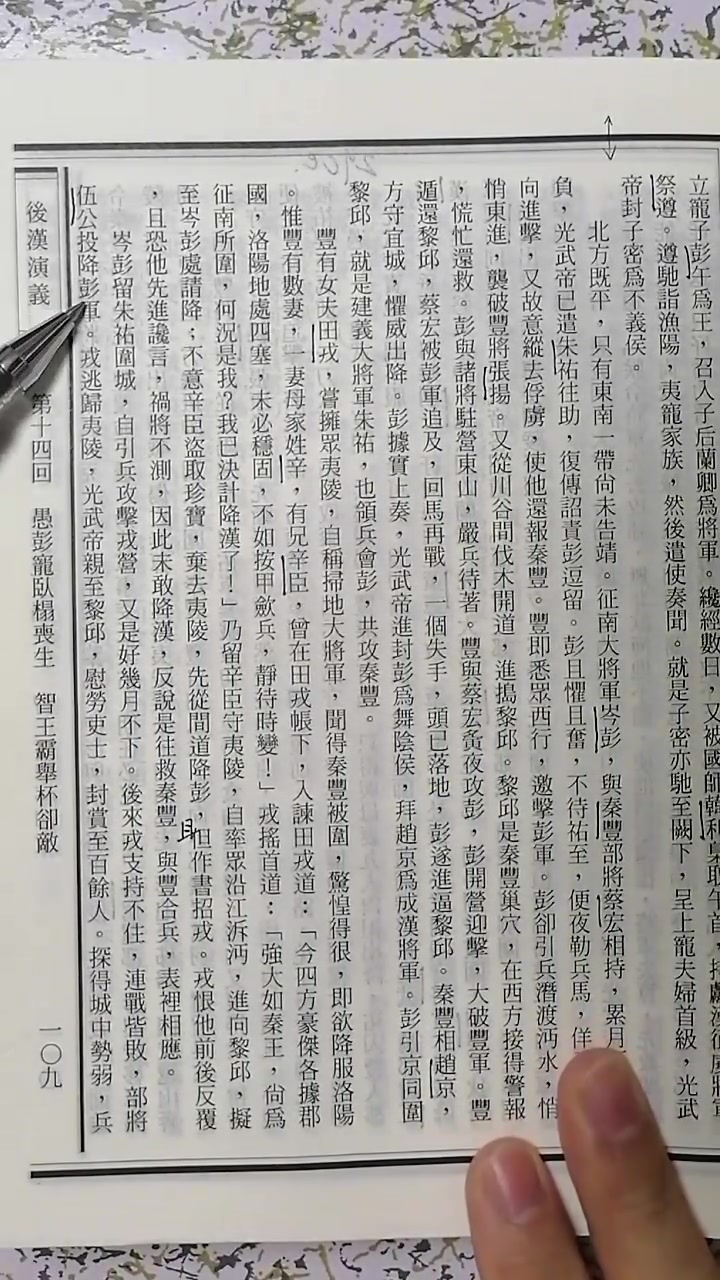 立寵子彭午爲王，召入子后蘭卿爲將軍。纔經數日，又被國師韓利
祭遵。遵馳詣漁陽，夷寵家族，然後遣使奏聞。就是子密亦馳至闕下，呈上寵夫婦首級，光武
帝封子密爲不義侯。
北方既平，只有東南一帶尚未告靖。征南大將軍岑彭，與秦豐部將蔡宏相持，累月
負，光武帝已遣朱祐往助，復傳詔責彭逗留。彭且懼且奮，不待祐至，便夜勒兵馬，佯
向進擊，又故意縱去俘虜，使他還報秦豐。豐即悉眾西行，邀擊彭軍。彭卻引兵潛渡沔水，悄
悄東進，襲破豐將張揚。又從川谷間伐木開道，進搗黎邱。黎邱是秦豐巢穴，在西方接得警報
，慌忙還救。彭與諸將駐營東山，嚴兵待著。豐與蔡宏夤夜攻彭，彭開營迎擊，大破豐軍。豐
遁還黎邱，蔡宏被彭軍追及，回馬再戰，一個失手，頭已落地，彭遂進逼黎邱。秦豐相趙京，
方守宜城，懼威出降。彭據實上奏，光武帝進封彭爲舞陰侯，拜趙京爲成漢將軍。彭引京同圍
黎邱，就是建義大將軍朱祐，也領兵會彭，共攻秦豐。
豐有女夫田戎，嘗擁眾夷陵，自稱掃地大將軍，聞得秦豐被圍，驚惶得很，即欲降服洛陽
。惟豐有數妻，一妻母家姓辛，有兄辛臣，曾在田戎帳下，入諫田戎道：「今四方豪傑各據郡
國，洛陽地處四塞，未必穩固，不如按甲斂兵，靜待時變！」戎搖首道：「強大如秦王，尙爲
征南所圍，何況是我？我已決計降漢了！」乃留辛臣守夷陵，自率眾沿江泝沔，進向黎邱，擬
至岑彭處請降；不意辛臣盜取珍寶，棄去夷陵，先從間道降彭，但作書招戎。戎恨他前後反覆
，且恐他先進讒言，禍將不測，因此未敢降漢，反說是往救秦豐，與豐合兵，表裡相應。
岑彭留朱祐圍城，自引兵攻擊戎營，又是好幾月不下。後來戎支持不住，連戰皆敗，部將
伍公投降彭軍。戎逃歸夷陵，光武帝親至黎邱，慰勞吏士，封賞至百餘人。探得城中勢弱，兵
後漢演義 第十四回 愚彭寵臥榻喪生 智王霸舉杯卻敵 一〇九